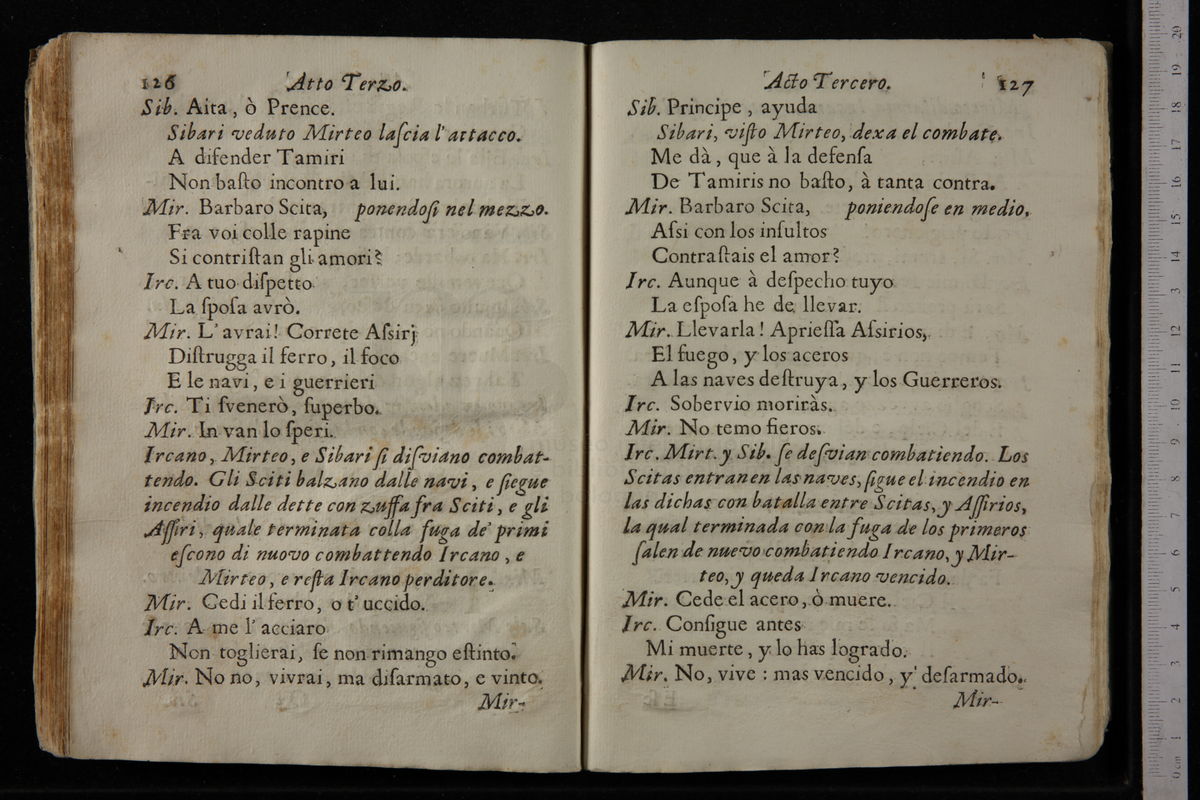 126 Atto Terzo.
Sib. Aita, ò Prence.
Sibari veduto Mirteo laſcia l'attacco.
A difender Tamiri
Non baſto incontro a lui.
Mir. Barbaro Scita, ponendoſi nel mezzo.
Fra voi colle rapine
Si contriſtan gli amori?
Irc. A tuo diſpetto
La ſpoſa avrò.
Mir. L'avrai! Correte Aſsirj
Diſtrugga il ferro, il foco
E le navi, e i guerrieri
Irc. Ti ſvenerò, ſuperbo.
Mir. In van lo ſperi.
Ircano, Mirteo, e Sibari ſi diſviano combat-
tendo. Gli Sciti balzano dalle navi, e ſiegue
incendio dalle dette con zuffa fra Sciti, e gli
Aſſiri, quale terminata colla fuga de' primi
eſcono di nuovo combattendo Ircano, e
Mirteo, e reſta Ircano perditore.
Mir. Cedi il ferro, o t'uccido.
Irc. A me l'acciaro
Non toglierai, ſe non rimango eſtinto.
Mir. No no, vivrai, ma diſarmato, e vinto.
Mir-
Acto Tercero. 127
Sib. Principe, ayuda
Sibari, viſto Mirteo, dexa el combate.
Me dà, que à la defenſa
De Tamiris no baſto, à tanta contra.
Mir. Barbaro Scita, poniendoſe en medio.
Aſsi con los inſultos
Contraſtais el amor?
Irc. Aunque à deſpecho tuyo
La eſpoſa he de llevar.
Mir. Llevarla! Aprieſſa Aſsirios,
El fuego, y los aceros
A las naves deſtruya, y los Guerreros.
Irc. Sobervio moriràs.
Mir. No temo fieros.
Irc. Mirt. y Sib. ſe deſvian combatiendo. Los
Scitas entran en las naves, ſigue el incendio en
las dichas con batalla entre Scitas, y Aſſirios,
la qual terminada con la fuga de los primeros
ſalen de nuevo combatiendo Ircano, y Mir-
teo, y queda Ircano vencido.
Mir. Cede el acero, ò muere.
Irc. Conſigue antes
Mi muerte, y lo has logrado.
Mir. No, vive : mas vencido, y deſarmado.
Mir-